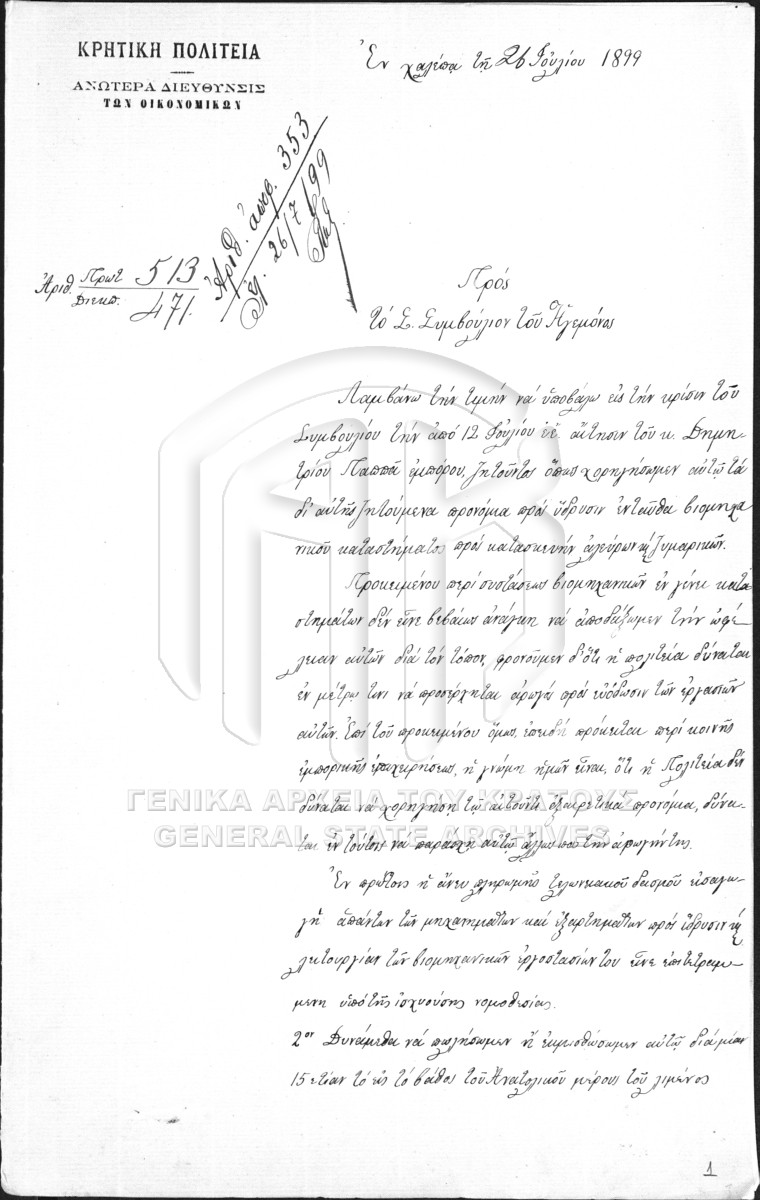 ΚΡΗΤΙΚΗ ΠΟΛΙΤΕΙΑ
ΑΝΩΤΕΡΑ ΔΙΕΥΘΥΝΣΙΣ
ΤΩΝ ΟΙΚΟΝΟΜΙΚΩΝ
Ἐν Χαλέπᾳ τῇ 26 Ἰουλίου 1899
Ἀριθ. ἀπορ. 353
26/7/99
Ἀριθ. Πρωτ 513
Διεκπ. 471.
Πρός
τὸ Σ. Συμβούλιον τοῦ Ἡγεμόνος
Λαμβάνω τὴν τιμὴν νὰ ὑποβάλω εἰς τὴν κρίσιν τοῦ
Συμβουλίου τὴν ἀπὸ 12 Ἰουλίου ἐ.ἔ. αἴτησιν τοῦ κ. Δημη-
τρίου Παππᾶ ἐμπόρου, ζητοῦντος ὅπως χορηγήσωμεν αὐτῷ τὰ
δι' αὐτῆς ζητούμενα προνόμια πρὸς ἵδρυσιν ἐνταῦθα βιομηχα
νικοῦ καταστήματος πρὸς κατασκευὴν ἀλεύρων καὶ ζυμαρικῶν.
Προκειμένου περὶ συστάσεως βιομηχανικῶν ἐν γένει κατα
στημάτων δὲν εἶνε βεβαίως ἀνάγκη νὰ ἀποδείξωμεν τὴν ὠφέ-
λειαν αὐτῶν διὰ τὸν τόπον, φρονοῦμεν δ' ὅτι ἡ πολιτεία δύναται
ἐν μέτρῳ τινι νὰ προσέρχηται ἀρωγὸς πρὸς εὐόδωσιν τῶν ἐργασιῶν
αὐτῶν. Ἐπὶ τοῦ προκειμένου ὅμως, ἐπειδὴ πρόκειται περὶ κοινῆς
ἐμπορικῆς ἐπιχειρήσεως, ἡ γνώμη ἡμῶν εἶναι, ὅτι ἡ Πολιτεία δὲν
δύναται νὰ χορηγήσῃ τῷ αἰτοῦντι ἐξαιρετικὰ προνόμια, δύνα-
ται ἐν τούτοις νὰ παράσχῃ αὐτῷ ἄλλως πως τὴν ἀρωγήν της.
Ἐν πρώτοις ἡ ἄνευ πληρωμῆς τελωνειακοῦ δασμοῦ εἰσαγω
γὴ ἁπάντων τῶν μηχανημάτων καὶ ἐξαρτημάτων πρὸς ἵδρυσιν καὶ
λειτουργίαν τῶν βιομηχανικῶν ἐργοστασίων του εἶνε ἐπιτετραμ-
μένη ὑπὸ τῆς ἰσχυούσης νομοθεσίας.
2ον Δυνάμεθα νὰ πωλήσωμεν ἢ ἐκμισθώσωμεν αὐτῷ διὰ μίαν
15 ετίαν τὸ εἰς τὸ βάθος τοῦ Ἀνατολικοῦ μέρους τοῦ λιμένος
ΓΕΝΙΚΑ ΑΡΧΕΙΑ ΤΟΥ ΚΡΑΤΟΥΣ
GENERAL STATE ARCHIVES
1